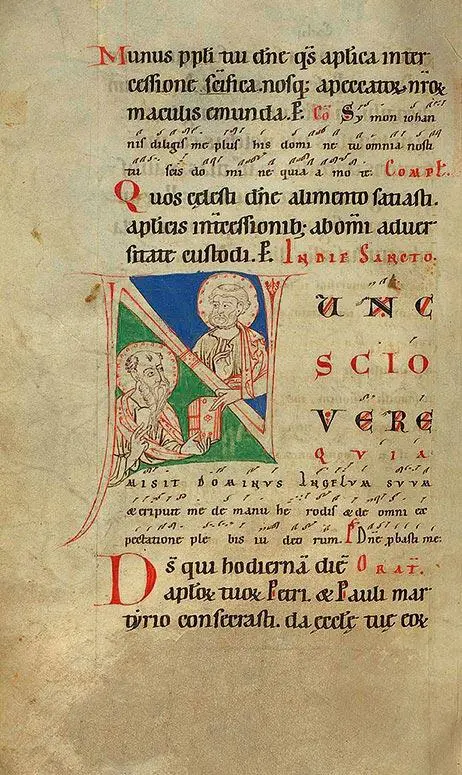 Munus ppli tui dñe qs aplica inter
cessione scifica. nosq; a peccatoꝝ nr̄oꝝ
maculis emunda. P. Cō Symon iohan
nis diligis me plus his domi ne tu omnia nosti
tu scis do mi ne quia a mo te. Compl.
Quos celesti dñe alimento satiasti.
aplicis intcessionib; ab omi aduer
sitate custodi. P. In die Sancto.
NUNC
SCIO
VERE
QVIA
MISIT DOMINVS ANGELVM SVVM
& eripuit me de manu he rodis & de omni ex
pectatione ple bis iu deo rum. Ps Dne pbasti me.
Ds qui hodiernā diē Orat.
aploꝝ tuoꝝ Petri. & Pauli mar
tyrio consecrasti. da eccłę tuę eoꝝ